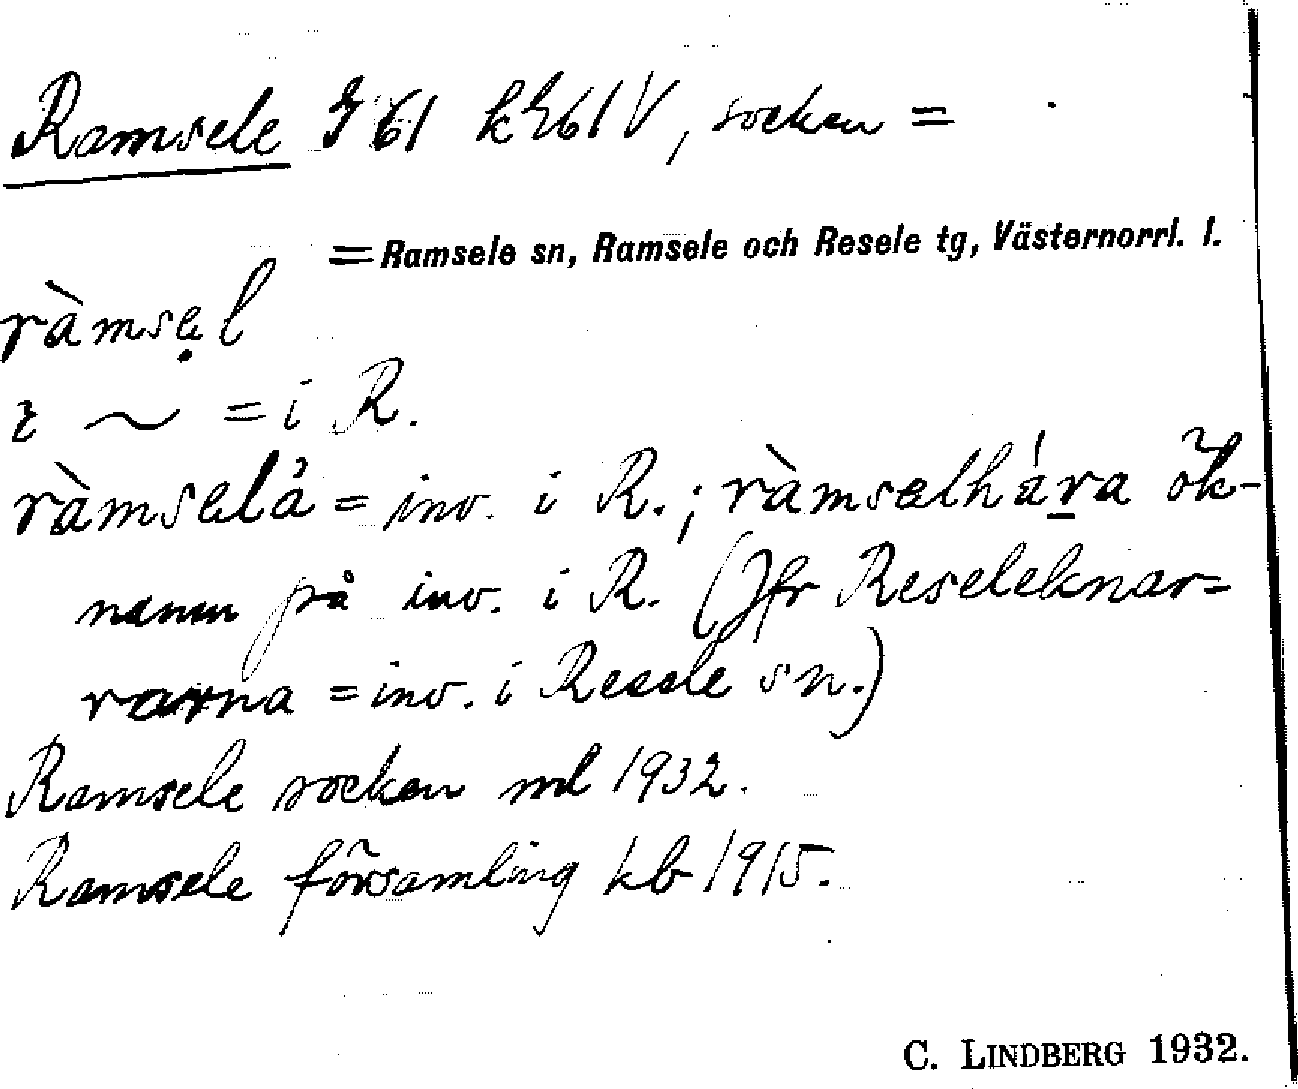 Ramsele G 61 k G 61 V, socken =
= Ramsele sn, Ramsele och Resele tg, Västernorrl. l.
ràmsẹl
ɩ ~ = i R.
ràmselå̀ = inv. i R.; ràmselhára ök-
namn på inv. i R. (Jfr Reseleknar-
rarna = inv. i Resele sn.)
Ramsele socken ml 1932.
Ramsele församling kb 1915.
C. LINDBERG 1932.